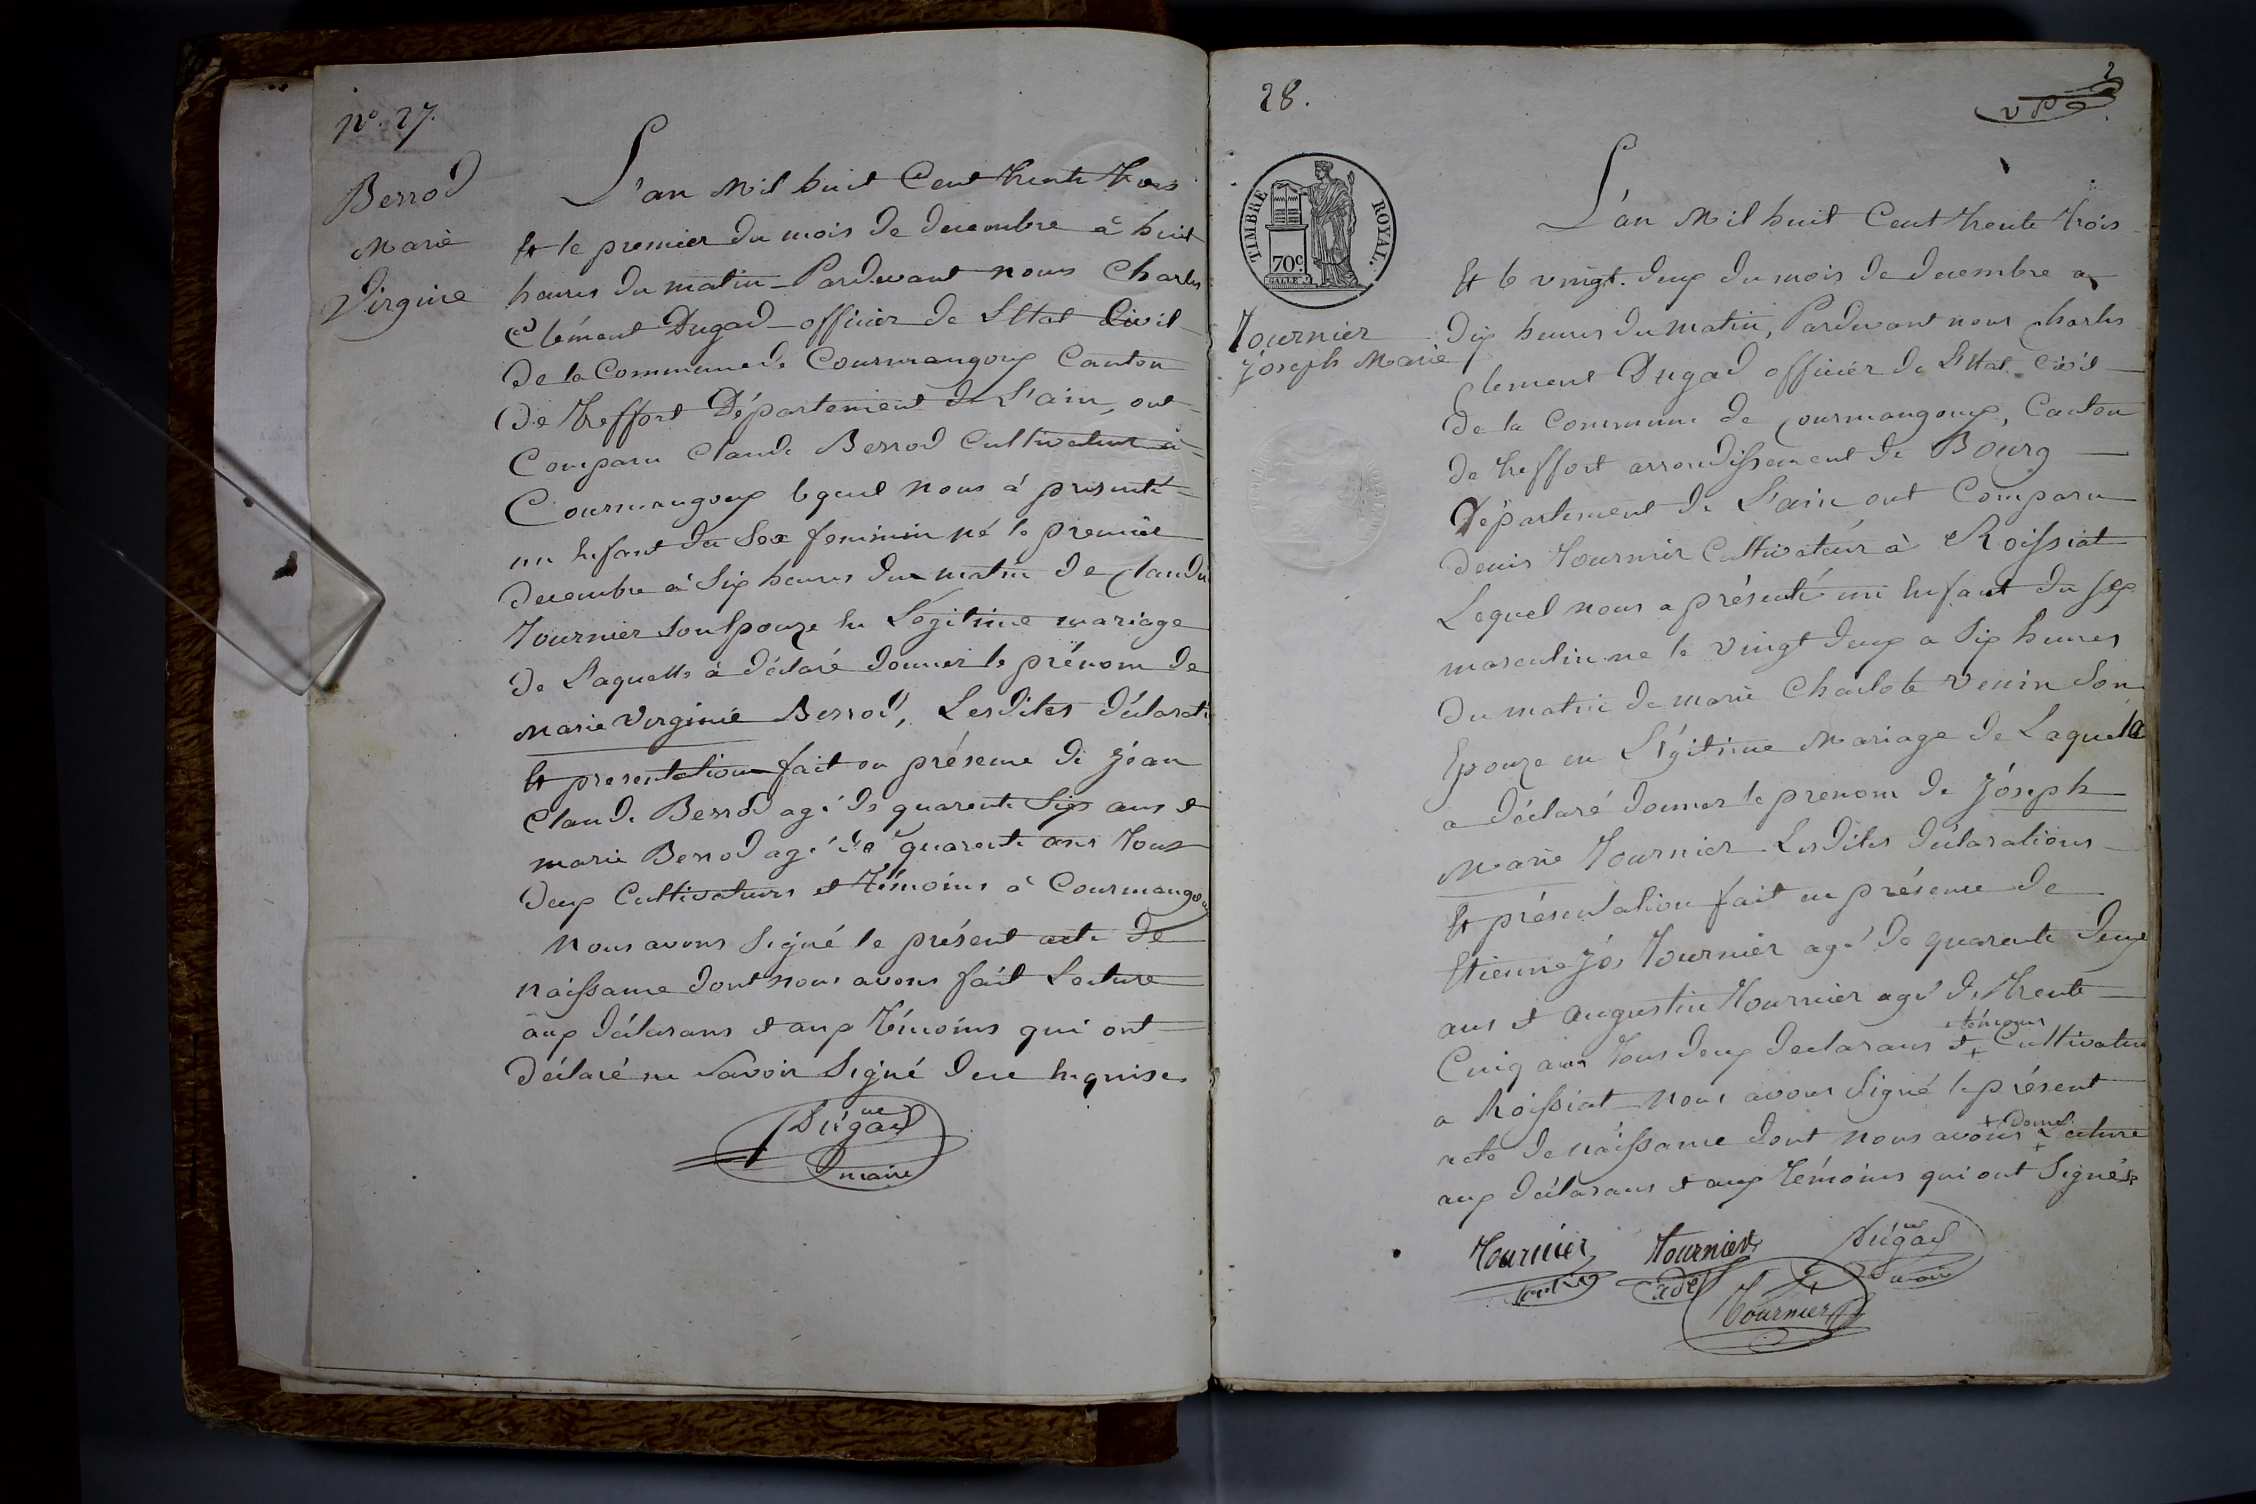 nº. 27.
Berrod
Marie
Virginie
L'an Mil huit Cent trente trois
Et le premier du mois de decembre à huit
heures du matin Pardevant nous Charles
Clément Dugad officier de L'Etat Civil
de la Commune de Courmangoux Canton
de treffort Département de L'ain, ont
Comparu Claude Berrod Cultivateur à
Courmangoux lequel nous à présenté
un Enfant du Sex feminin né le premier
decembre à Six heures du matin de Claudu
Tournier Son Epouze En Légitime mariage
de Laquelle à déclaré donner le prénom de
Marie Virginie Berrod, Lesdites déclarati
Et presentation fait en présence de Jéan
Claude Berrod agé de quarente Six ans et
marie Berrod agé de quarente ans tous
deux Cultivateurs et témoins à Courmangoux
Nous avons Signé le présent acte de
naissance dont nous avons fait Lecture
aux déclarans et aux témoins qui ont
déclaré ne Savoir Signé de ce Enquise
Dugad
maire
28.
2
TIMBRE ROYAL.
70c.
Tournier
Joseph Marie
L'an Mil huit Cent trente trois
Et le vingt deux du mois de decembre a
dix heures du matin, Pardevant nous Charles
Clement Dugad officiér de L'Etat Civil
de la Commune de Courmangoux, Canton
de treffort arrondissement de Bourg
Département de L'ain ont Comparu
denis Tournier Cultivateur à Roissiat
Lequel nous a présenté un Enfant du Sex
masculin ne le vingt deux a Six heures
du matin de marie Charlote Venin Son
Epouze en Légitime Mariage de Laquella
a déclaré donner le prenom de Jóseph
Marie Tournier Lesdites déclarations
Et présentation fait en présence de
Etienne Jós Tournier agé de quarente deux
ans et Augustin Tournier agé de trente
+ témoins
Cinq ans tous deux declarans et + Cultivateur
a Roissiat Nous avons Signé le présent
+ donné
acte de naissance dont nous avons + Lecture
aux déclarans et aux témoins qui ont Signés
Tournier Tournier Dugad
cadet maire
Tournier